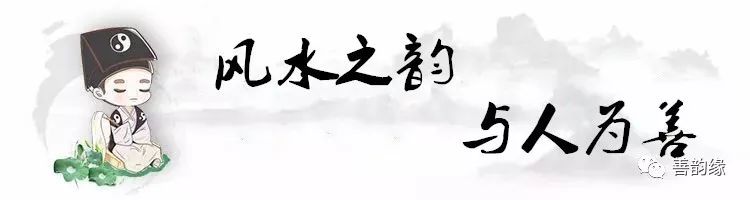 风水之韵
与人为善
善韵缘